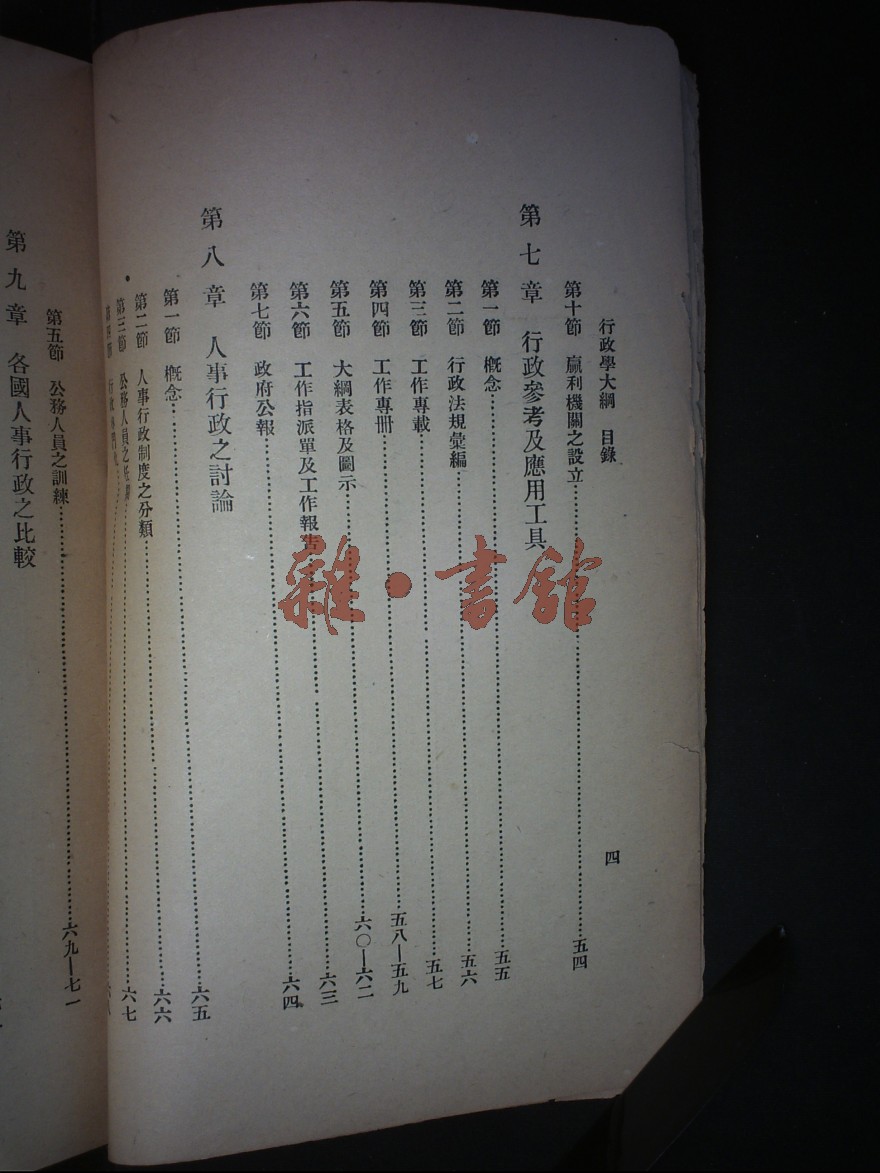 行政學大綱　目錄
四
第十節　贏利機關之設立……五四
第七章　行政參考及應用工具
第一節　概念……五五
第二節　行政法規彙編……五六
第三節　工作專載……五七
第四節　工作專冊……五八—五九
第五節　大綱表格及圖示……六〇—六二
第六節　工作指派單及工作報告……六三
第七節　政府公報……六四
第八章　人事行政之討論
第一節　概念……六五
第二節　人事行政制度之分類……六六
第三節　公務人員之……六七
第五節　公務人員之訓練……六九—七一
第九章　各國人事行政之比較
雜·書館